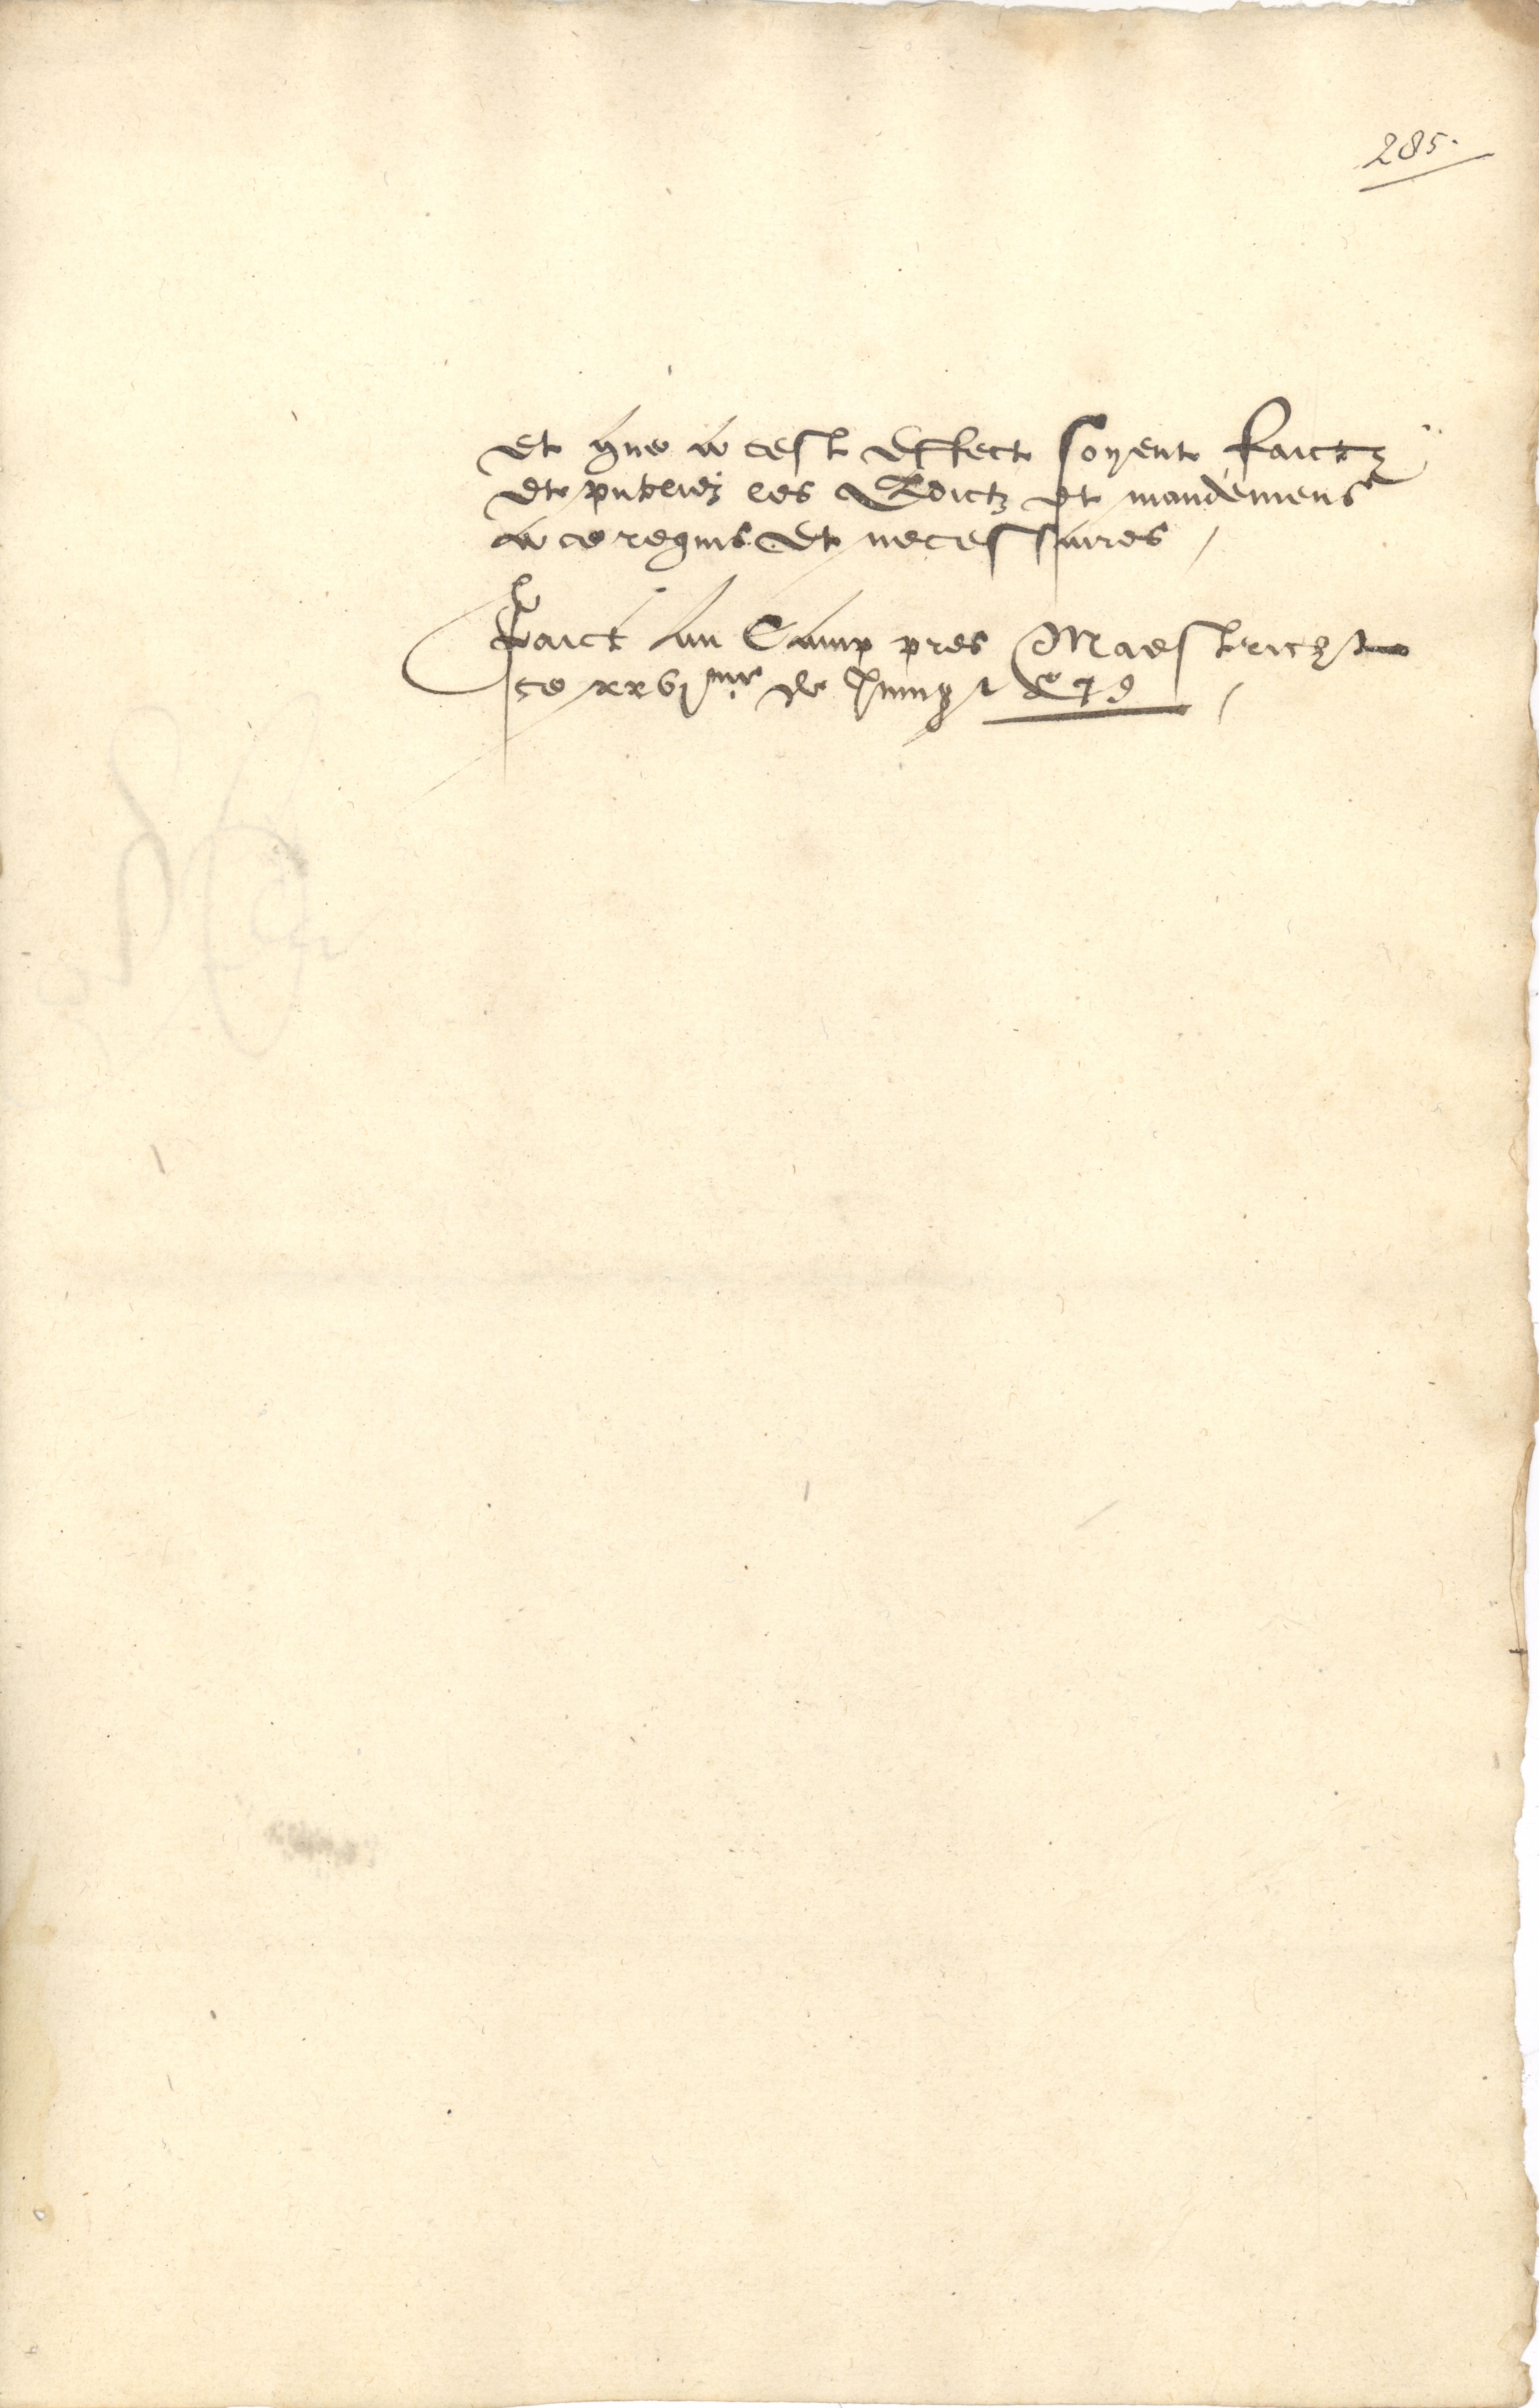 285.
et que a cest effect soyent faictz
et publiez les Edictz et mandemens
a ce requis et necessaires /
Faict au Camp pres Maestricht
ce xxvjme de Juing 1579 /